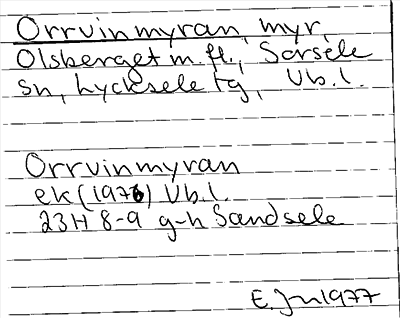 Orrvinmyran, myr,
Olsberget m.fl., Sorsele
sn, Lycksele tg, Vb.l.
Orrvinmyran
ek (1976) Vb.l.
23H 8-9 g-h Sandsele
E. Jn 1977